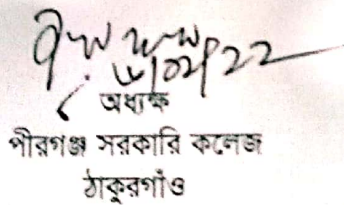 অধ্যক্ষ
পীরগঞ্জ সরকারি কলেজ
ঠাকুরগাঁও